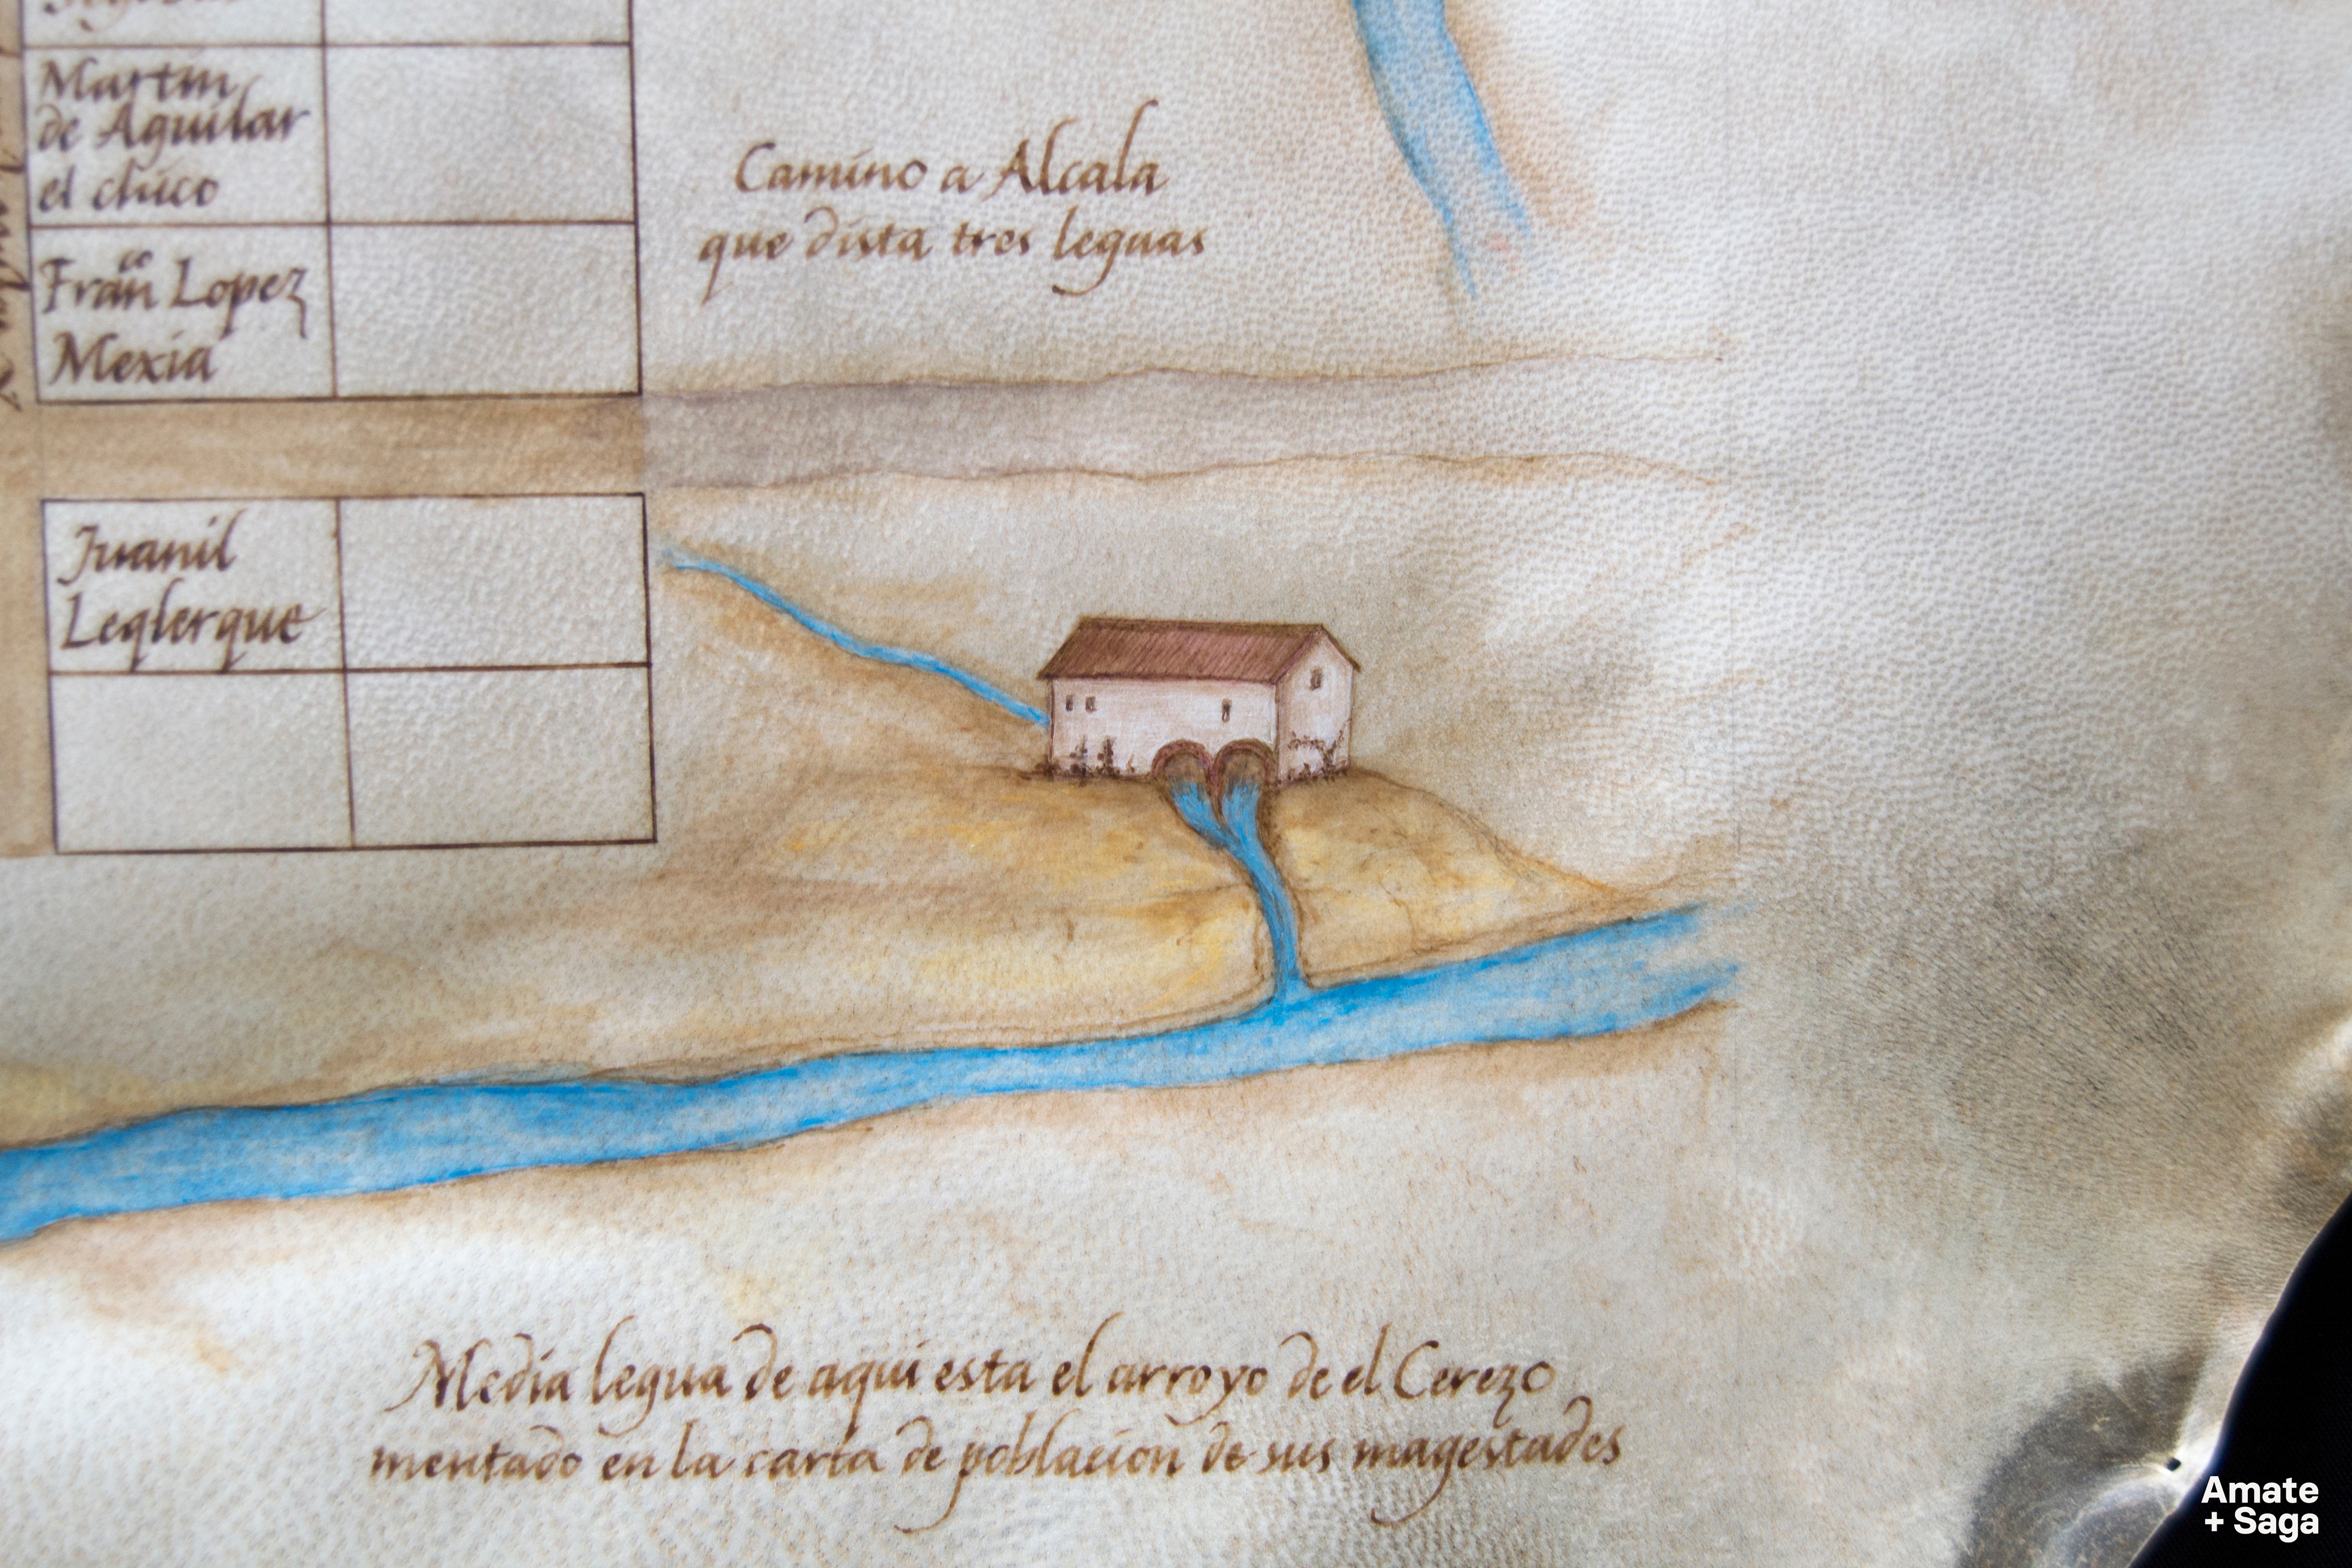 Martin
de Aguilar
el chico
Fran^co Lopez
Mexia
Camino a Alcala
que dista tres leguas
Juanil
Leqlerque
Media legua de aqui esta el arroyo de el Cerezo
mentado en la carta de poblacion de sus magestades
Amate
+ Saga